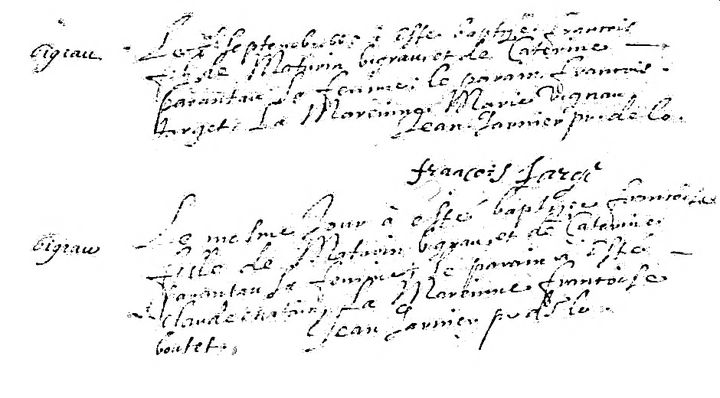 bigrau
Le septembre à esté baptizé francois
filz de Maturin bigrau et de Caterine
parantau sa femme, le parain francois
target, La Marenine Marie Vignau,
Jean Garnier pr. de lo.
francois Targé
bigrau
Le mesme Jour à esté baptizée francoise
fille de Maturin bigrau et de Caterine
parantau sa femme; le parain à esté
Claude La Marenine francoise
boutet,
Jean Garnier pr. de lo.